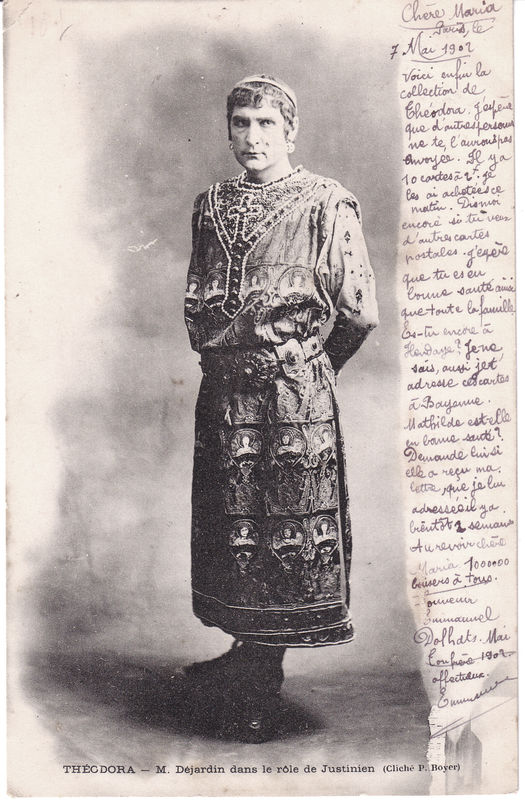 Chère Maria
Paris, le
7 Mai 1902
Voici enfin la
collection de
Théodora. J'espère
que d'autres personnes
ne te l'auront pas
envoyée. Il y a
10 cartes à 2f. je
les ai achetées ce
matin. Dis moi
encore si tu veux
d'autres cartes
postales. J'espère
que tu es en
bonne santé ainsi
que toute la famille
Es-tu encore à
Hendaye? Je ne
sais, aussi je t'
adresse ces cartes
à Bayonne.
Mathilde est-elle
en bonne santé?
Demande lui si
elle a reçu ma
lettre que je lui
adressée il y a
bientôt 2 semaines
Au revoir chère
Maria 1000000
baisers à tous.
Souvenir
Emmanuel
Dolhats. Mai
1902
affectueux.
THÉODORA — M. Déjardin dans le rôle de Justinien (Cliché P. Boyer)